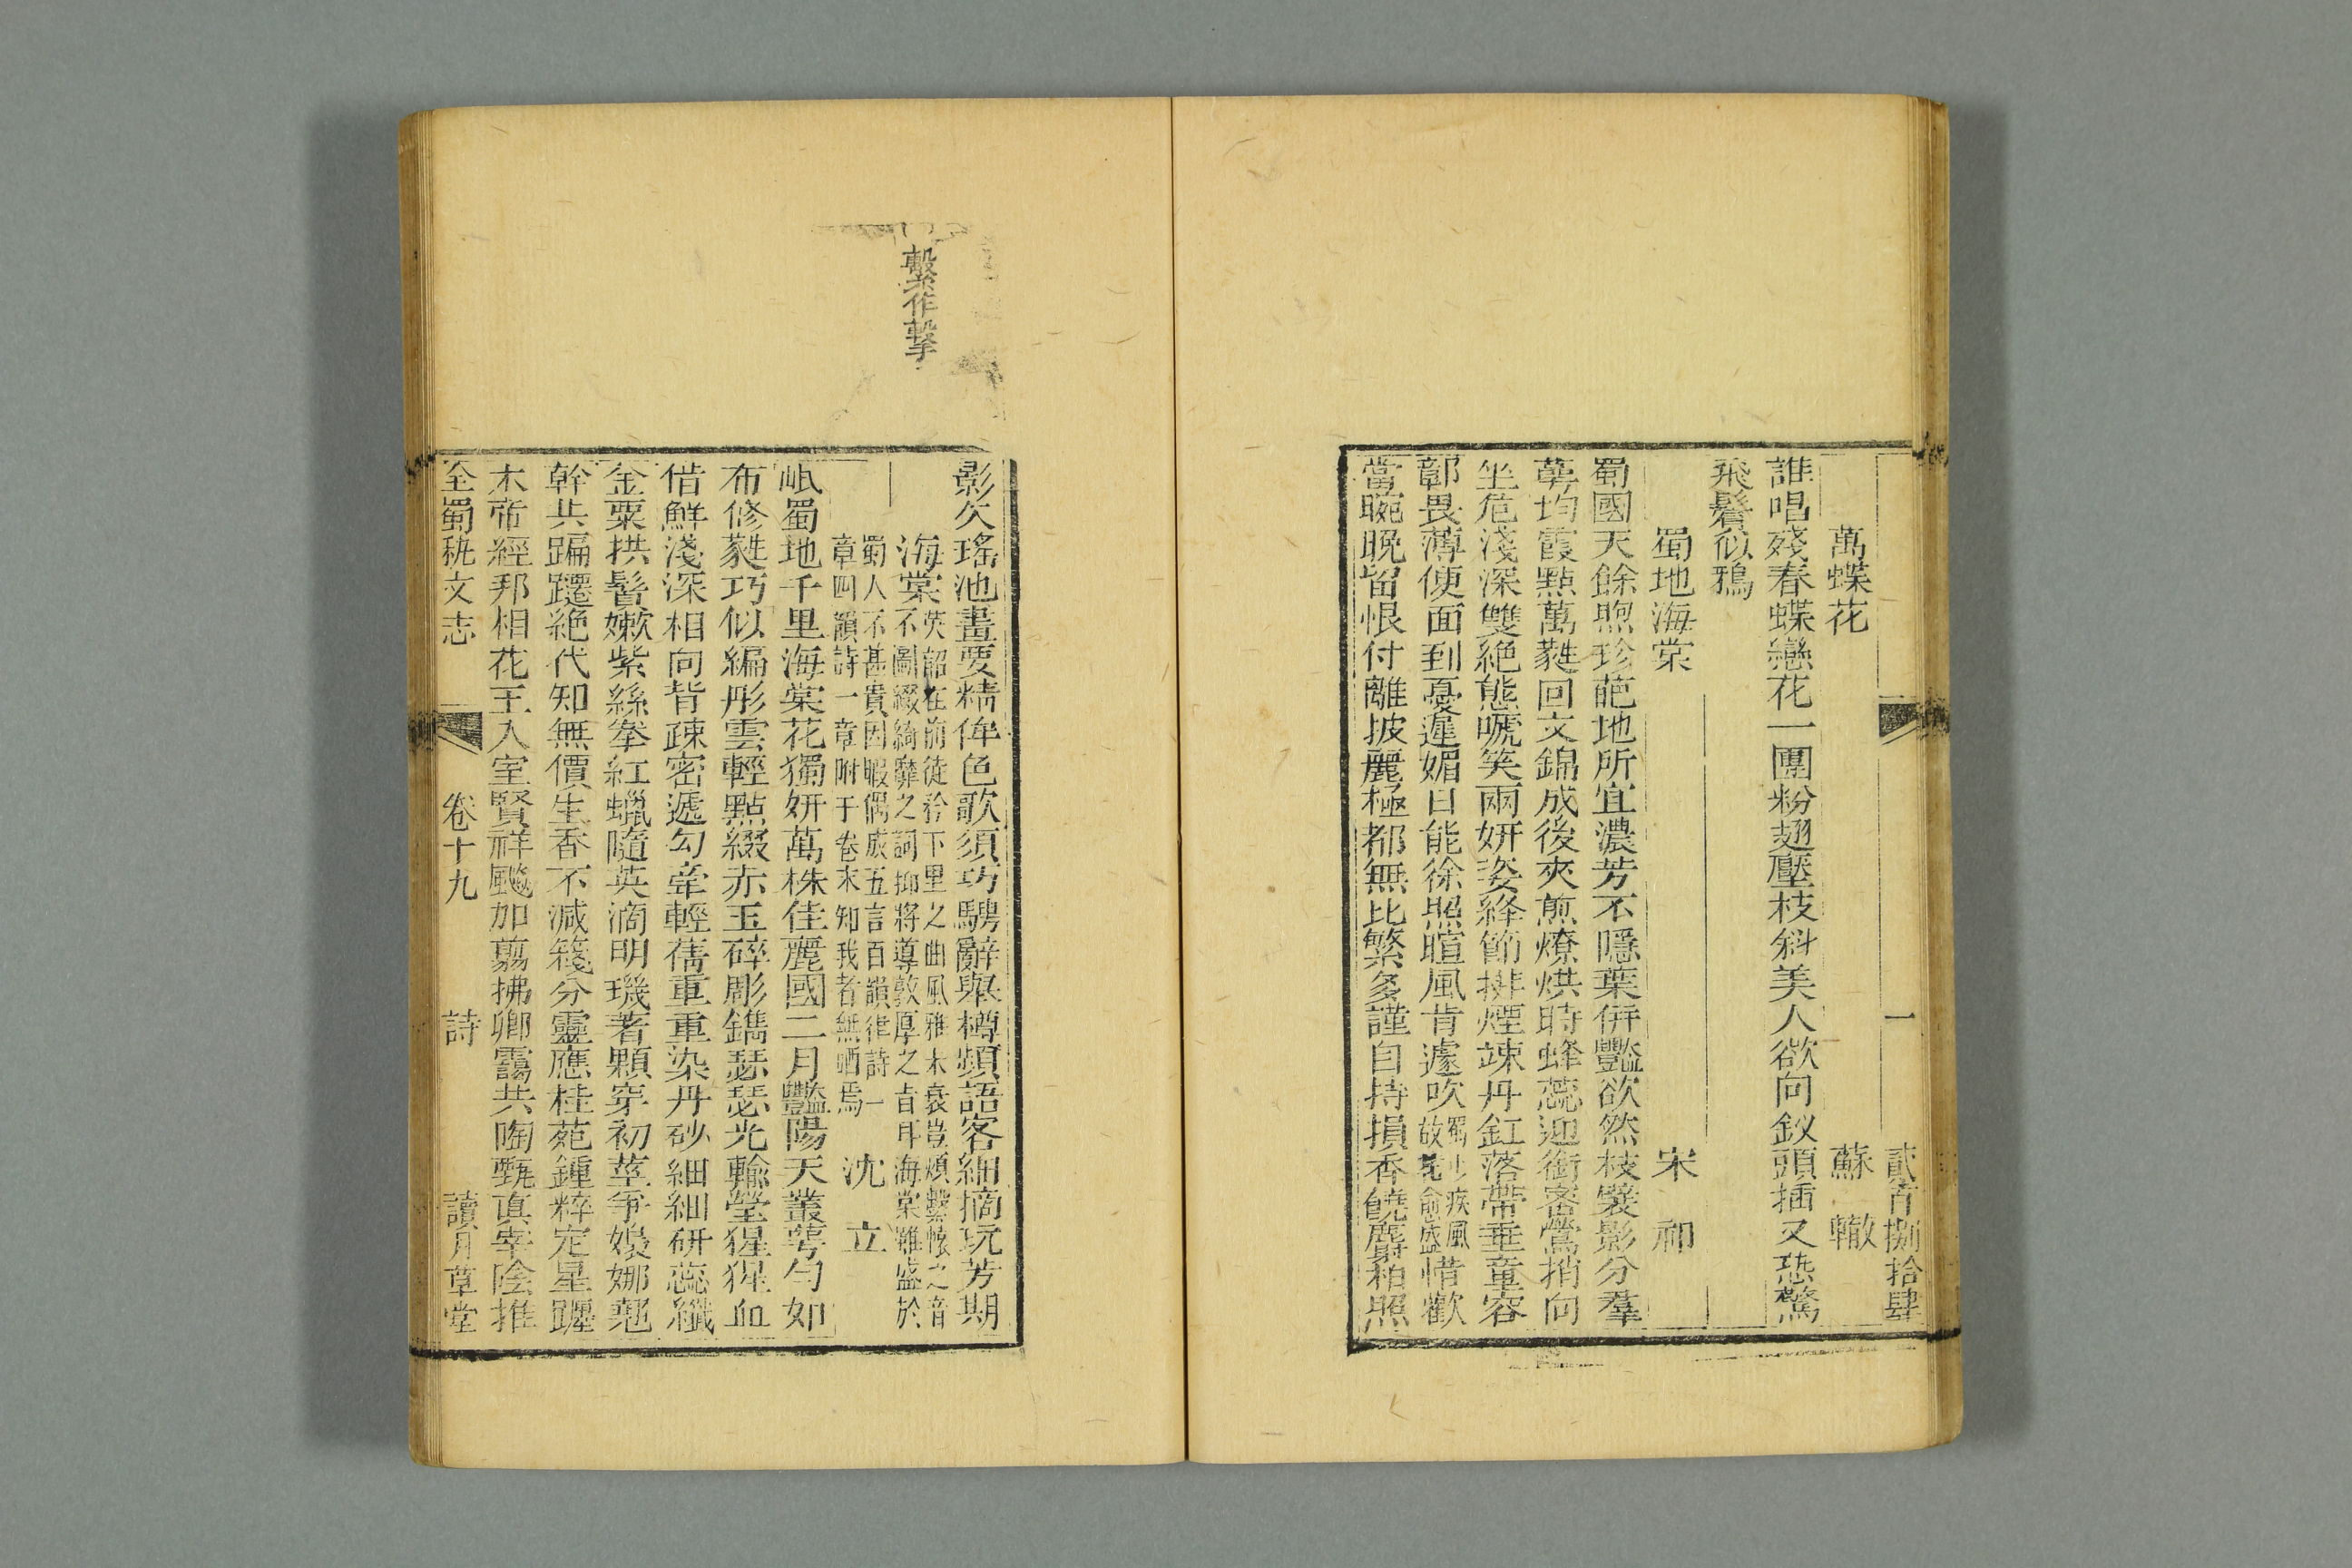 一 貳百捌拾肆
萬蝶花 蘇轍
誰唱殘春蝶戀花一團粉翅壓枝斜美人欲向釵頭插又恐驚
飛鬢似鴉
蜀地海棠 宋祁
蜀國天餘煦珍葩地所宜濃芳不隱葉併豔欲然枝襞影分羣
萼均霞點萬蕤回文錦成後夾煎燎烘時蜂蕊迎銜密鶯捎向
坐危淺深雙絕態啼笑兩妍姿絳節排煙竦丹釭落帶垂童容
鄣畏薄便面到憂遲媚日能徐照暄風肯遽吹
蜀
疾風
故
愈盛
惜歡
當晼晚留恨付離披麗極都無比繁多謹自持損香饒麝柏照
繫作擊
影欠瑤池畫要精侔色歌須巧騁辭舉樽頻語客細摘玩芳期
海棠
英韶在前徒矜下里之曲風雅未衰豈煩繫帨之音
不圖綴綺靡之詞抑將導敦厚之旨耳海棠雖盛於
蜀人不甚貴因暇偶成五言百韻律詩一
章四韻詩一章附于卷末知我者無哂焉
沈立
岷蜀地千里海棠花獨妍萬株佳麗國二月豔陽天叢萼勻如
布修蕤巧似編彤雲輕點綴赤玉碎彫鐫瑟瑟光輸瑩猩猩血
借鮮淺深相向背疎密遞勾牽輕蒨重重染丹砂細細研蕊纖
金粟拱鬢嫩紫絲拳紅蠟隨英滴明璣著顆穿初莖爭嫋娜翹
幹共蹁躚絕代知無價生香不減箋分靈應桂苑鍾粹定星躔
木帝經邦相花王入室賢祥飈加翦拂卿靄共陶甄真宰陰推
全蜀秇文志 卷十九 詩 讀月草堂